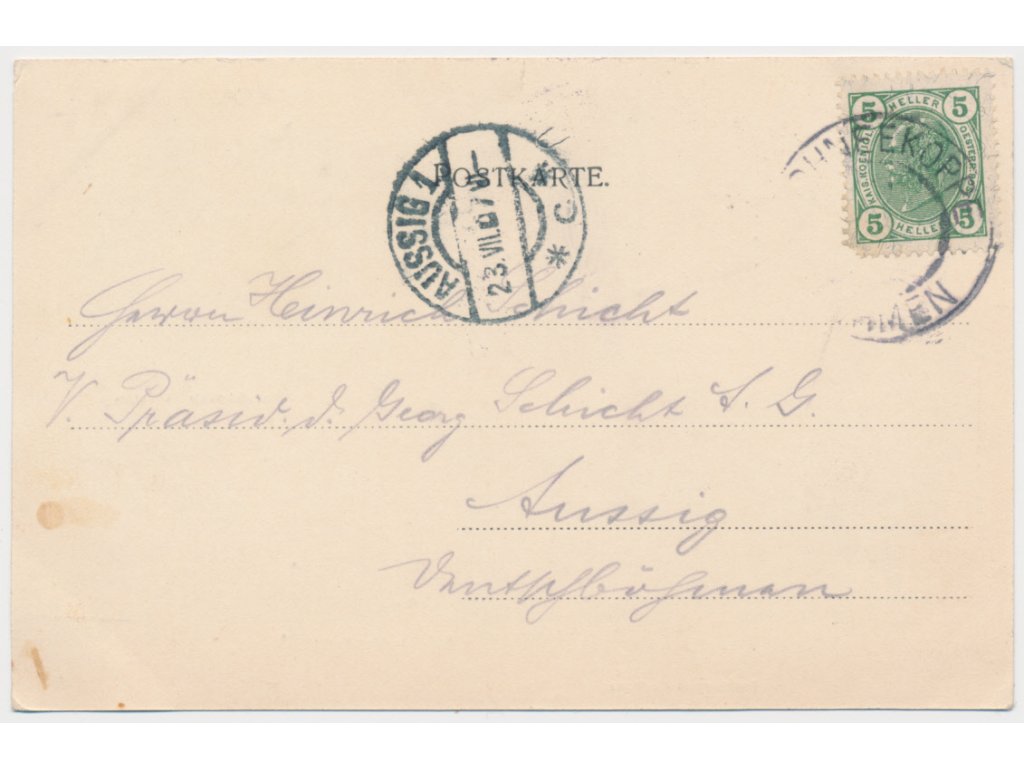 POSTKARTE.
5 HELLER 5
KAIS. KOENIGL. OESTERR. POST
5 HELLER 5
AUSSIG 1
23.VII.07
* C *
Herrn Heinrich Schicht
V. Präsid. d. Georg Schicht A. G.
Aussig
Deutschböhmen